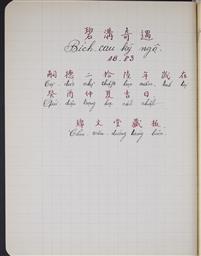 碧溝奇遇
Bích câu kỳ ngộ
18.83
嗣德二拾陸年歲在
Tự đức nhị thập lục niên, tuế tại
癸酉仲夏吉日
Quí dậu trọng hạ cát nhật
錦文堂藏板
Cẩm văn đường tàng bản